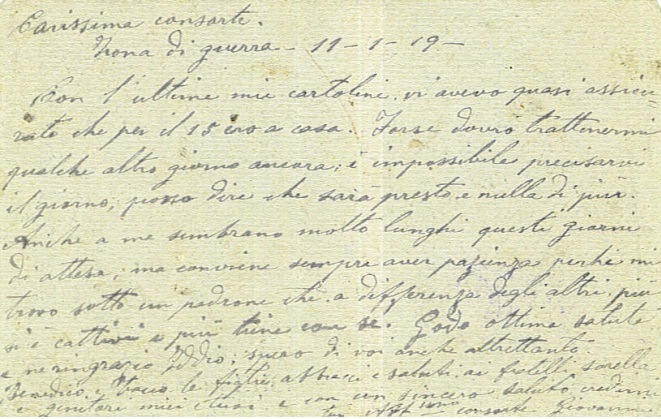 Carissima consorte.
Zona di guerra - 11 - 1 - 19 -
Con l'ultime mie cartoline vi avevo quasi assicu-
rato che per il 15 ero a casa. Forse dovrò trattenermi
qualche altro giorno ancora; è impossibile precisarvi
il giorno; posso dire che sarà presto e nulla di più.
Anche a me sembrano molto lunghi questi giorni
di attesa; ma conviene sempre aver pazienza perchè mi
trovo sotto un padrone che a differenza degli altri più
si è cattivi e più tiene con se. Godo ottima salute
e ne ringrazio Iddio; spero di voi anche altrettanto.
Benedico, bacio le figlie; abbracci e saluti ai fratelli, sorella
e genitori miei e tuoi e con un sincero saluto credimi
consorte Giovanni